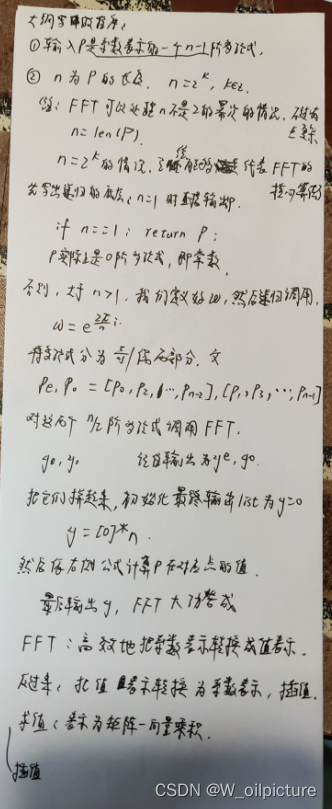 大纲写可以按序：
① 输入P是系数表示的一个n-1阶多项式.
② n为P的长度, n=2^k, k∈Z.
注: FFT可以处理n不是2的幂次的情况,
n=len(P).
n=2^k的情况, 代表FFT的
核心算法
先写出递归的底层, n=1时直接输出P.
if n==1: return P;
P实际上是0阶多项式, 即常数.
否则, 对于n>1, 我们定义好ω, 然后递归调用,
ω=e^{2π/n i}.
多项式分为奇/偶两部分.
Pe, Po = [P0, P2, …, Pn-2], [P1, P3, …, Pn-1]
对这两个n/2阶多项式调用FFT.
ye, yo 输出为ye, yo
把它们拼起来, 初始化最终输出list为y=0
y=[0]*n.
然后依右侧公式计算P在对应点的值.
最后输出y, FFT大功告成
FFT: 高效地把系数表示转换成值表示.
反过来, 把值表示转换为系数表示, 插值.
求值: 表示为矩阵-向量乘积.
插值
CSDN @W_oilpicture